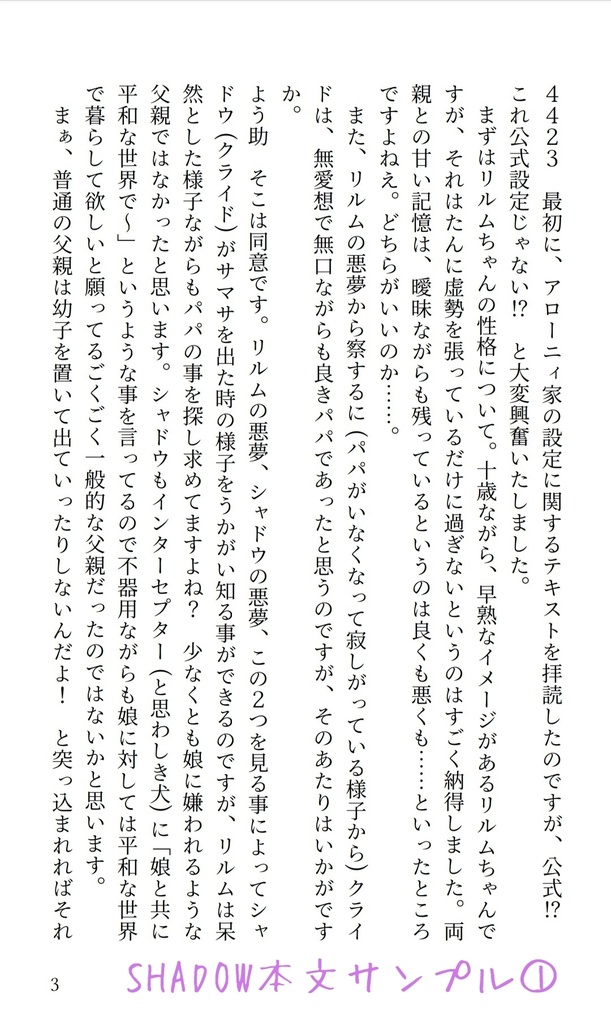 4423　最初に、アローニィ家の設定に関するテキストを拝読したのですが、公式!?
これ公式設定じゃない!?　と大変興奮いたしました。
　まずはリルムちゃんの性格について。十歳ながら、早熟なイメージがあるリルムちゃんで
すが、それはたんに虚勢を張っているだけに過ぎないというのはすごく納得しました。両
親との甘い記憶は、曖昧ながらも残っているというのは良くも悪くも……といったところ
ですよねえ。どちらがいいのか……。
　また、リルムの悪夢から察するに(パパがいなくなって寂しがっている様子から)クライ
ドは、無愛想で無口ながらも良きパパであったと思うのですが、そのあたりはいかがです
か。
よう助　そこは同意です。リルムの悪夢、シャドウの悪夢、この2つを見る事によってシャ
ドウ(クライド)がサマサを出た時の様子をうかがい知る事ができるのですが、リルムは呆
然とした様子ながらもパパの事を探し求めてますよね？　少なくとも娘に嫌われるような
父親ではなかったと思います。シャドウもインターセプター(と思わしき犬)に「娘と共に
平和な世界で～」というような事を言ってるので不器用ながらも娘に対しては平和な世界
で暮らして欲しいと願ってるごくごく一般的な父親だったのではないかと思います。
　まぁ、普通の父親は幼子を置いて出ていったりしないんだよ！　と突っ込まれればそれ
3
SHADOW本文サンプル①